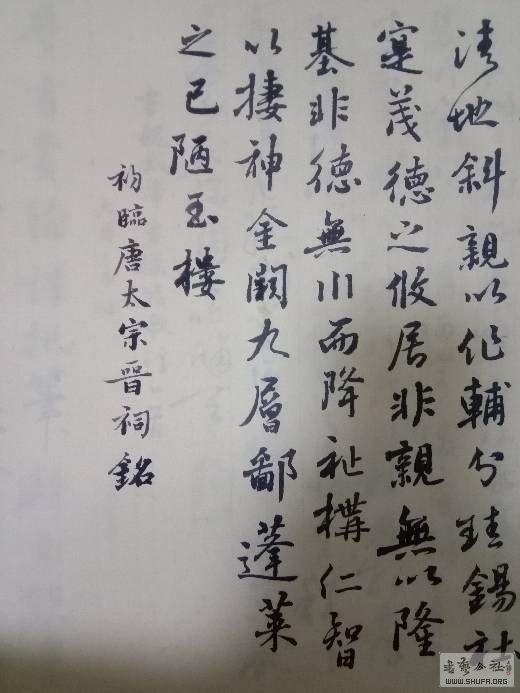 地斜親以作輔分珪錫社
寔茂德之攸居非親無以隆
基非德無川而降祉構仁智
以棲神金闕九層鄙蓬萊
之已陋玉樓
初臨唐太宗晋祠銘
书艺公社
WWW.SHUFA.ORG